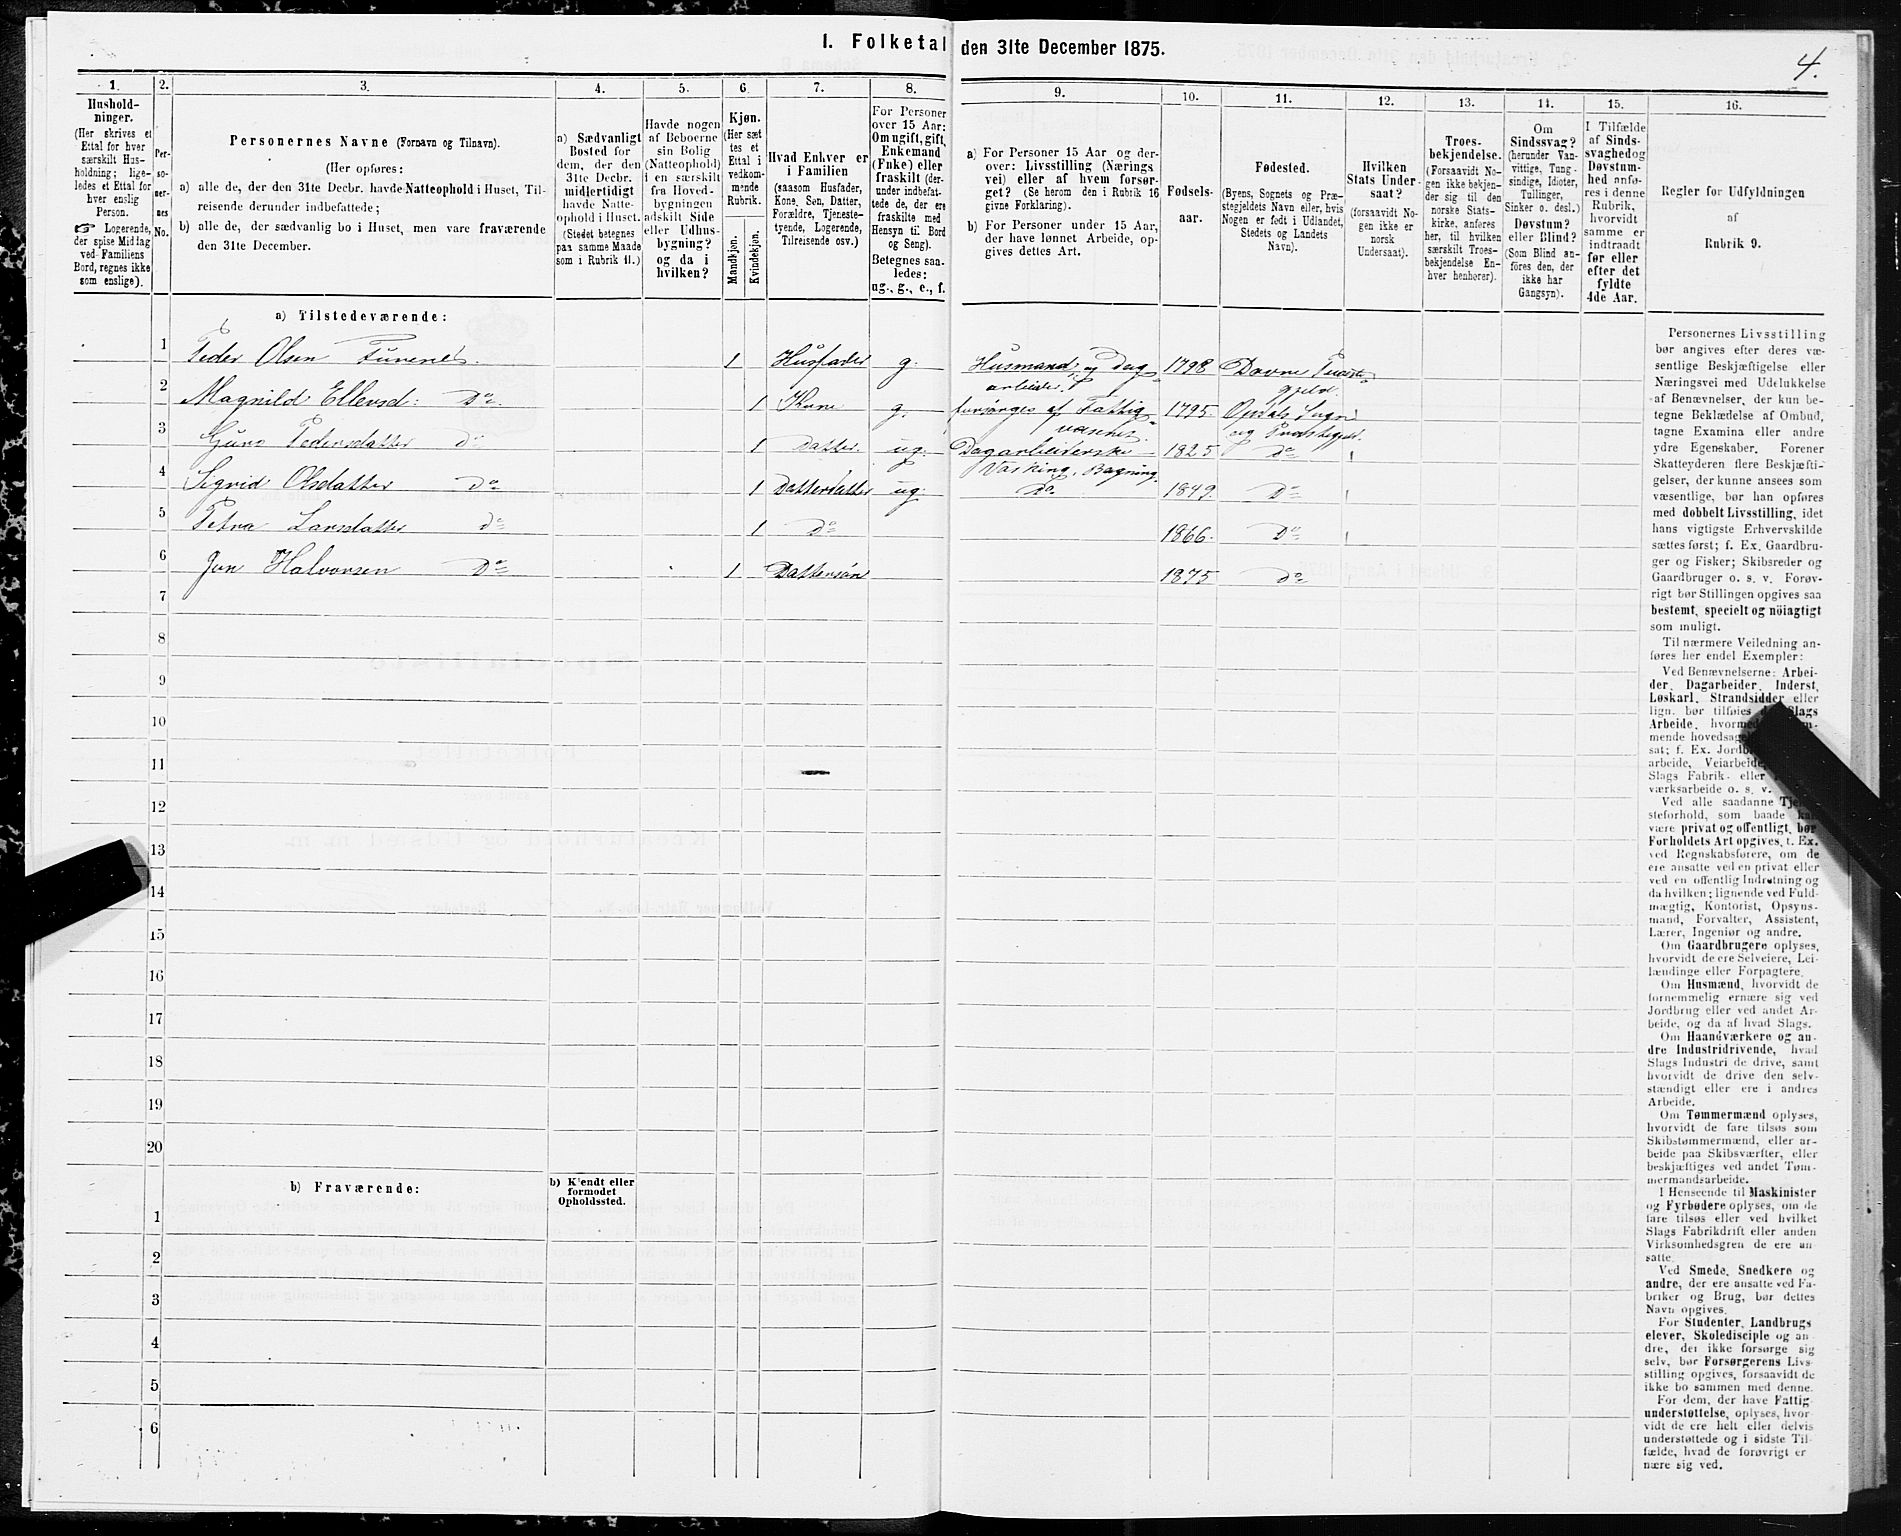 1. Folketal den 31te December 1875.
4.
1.
Hushold-
ninger.
(Her skrives et
Ettal for hver
særskilt Hus-
holdning; lige-
ledes et Ettal for
hver enslig
Person.
☞ Logerende,
der spise Middag
ved Familiens
Bord, regnes ikke
som enslige).
2.
Per-
so-
ner-
nes
No.
3.
Personernes Navne (Fornavn og Tilnavn).
(Her opføres:
a) alle de, der den 31te Decbr. havde Natteophold i Huset, Til-
reisende derunder indbefattede;
b) alle de, der sædvanlig bo i Huset, men vare fraværende
den 31te December.
4.
a) Sædvanligt
Bosted for
dem, der den
31te Decbr.
midlertidigt
havde Natte-
ophold i Huset.
(Stedet betegnes
paa samme Maade
som i Rubrik 11.)
5.
Havde nogen
af Beboerne
sin Bolig
(Natteophold)
i en særskilt
fra Hoved-
bygningen
adskilt Side
eller Udhus-
bygning?
og da i
hvilken?
6.
Kjøn.
(Her sæt
tes et
Ettal i
vedkom-
mende
Rubrik.
Mandkjøn.
Kvindekjøn.
7.
Hvad Enhver er
i Familien
(saasom Husfader,
Kone, Søn, Datter,
Forældre, Tjeneste-
tyende, Logerende,
Tilreisende osv.)
8.
For Personer
over 15 Aar:
Om ugift, gift,
Enkemand
(Enke) eller
fraskilt (der-
under indbefat-
tede de, der ere
fraskilte med
Hensyn til Bord
og Seng).
Betegnes saa-
ledes:
ug., g., e., f.
9.
a) For Personer 15 Aar og der-
over: Livsstilling (Nærings
vei) eller af hvem forsør-
get? (Se herom den i Rubrik 16
givne Forklaring).
b) For Personer under 15 Aar,
der have lønnet Arbeide, op-
gives dettes Art.
10.
Fødsels-
aar.
11.
Fødested.
(Byens, Sognets og Præ-
stegjeldets Navn eller, hvis
Nogen er født i Udlandet,
Stedets og Landets
Navn).
12.
Hvilken
Stats Under-
saat?
(forsaavidt No-
gen ikke er
norsk
Undersaat).
13.
Troes-
bekjendelse.
(Forsaavidt No-
gen ikke bekjen-
der sig til den
norske Stats-
kirke, anføres
her, til hvilken
særskilt Troes-
bekjendelse En-
hver henhører).
14.
Om
Sindssvag?
(herunder Van-
vittige, Tung-
sindige, Idioter,
Tullinger,
Sinker o. desl.)
Døvstum?
eller Blind?
(Som Blind an-
føres den, der
ikke har
Gangsyn).
15.
I Tilfælde
af Sinds-
svaghed og
Døvstum-
hed anfø-
res i denne
Rubrik,
hvorvidt
samme er
indtraadt
før eller
efter det
fyldte
4de Aar.
16.
Regler for Udfyldningen
af
Rubrik 9.
a) Tilstedeværende:
1 Peder Olsen 1 Husfader g. Husmand og Dag 1798 Dovre Præste
arbeider gjeld.
2 Magnild Ellensd: Do 1 Kone g. forsørges af Fattig 1795. Opdals Sogn
væsenet. og Præstegjeld.
3 Guro Pedersdatter do 1 Datter ug. Dagarbeiderske 1825 do
Vasking, Bagning.
4 Sigrid Olsdatter do 1 Datterdatter ug. Do. 1849. Do
5 Petra Larsdatter do 1 Do 1866. Do
6 Jon Halvorsen Do 1 Dattersøn 1875 do
7
8
9
10
11
12
13
14
15
16
17
18
19
20
b) Fraværende:
b) Kjendt eller
formodet
Opholdssted.
1
2
3
4
5
6
Personernes Livsstilling
bør angives efter deres væ-
sentlige Beskjæftigelse eller
Næringsvei med Udelukkelse
af Benævnelser, der kun be-
tegne Beklædelse af Ombud,
tagne Examina eller andre
ydre Egenskaber. Forener
Skatteyderen flere Beskjæfti-
gelser, der kunne ansees som
væsentlige, bør han opføres
med dobbelt Livsstilling, idet
hans vigtigste Erhvervskilde
sættes først; f. Ex. Gaardbru-
ger og Fisker; Skibsreder og
Gaardbruger o. s. v. Forøv-
rigt bør Stillingen opgives saa
bestemt, specielt og nöiagtigt
som muligt.
Til nærmere Veiledning an-
føres her endel Exempler:
Ved Benævnelserne: Arbei-
der, Dagarbeider, Inderst,
Løskarl, Strandsidder eller
lign. bør tilføies Slags
Arbeide, hvormed
mende hovedsage
sat; f. Ex. Jordb
arbeide, Veiarbeide,
Slags Fabrik- eller
værksarbeide o. s. v.
Ved alle saadanne Tje
steforhold, som baade kan
være privat og offentligt, bør
Forholdets Art opgives, f. Ex.
ved Regnskabsførere, om de
ere ansatte ved en privat eller
ved en offentlig Indretning og
da hvilken; lignende ved Fuld-
mægtig, Kontorist, Opsyns-
mand, Forvalter, Assistent,
Lærer, Ingeniør og andre.
Om Gaardbrugere oplyses,
hvorvidt de ere Selveiere, Lei-
lændinge eller Forpagtere.
Om Husmænd, hvorvidt de
fornemmelig ernære sig ved
Jordbrug eller ved andet Ar-
beide, og da af hvad Slags.
Om Haandværkere og an-
dre Industridrivende, hvad
Slags Industri de drive, samt
hvorvidt de drive den selv-
stændigt eller ere i andres
Arbeide.
Om Tømmermænd oplyses,
hvorvidt de fare tilsøs som
Skibstømmermænd, eller ar-
beide paa Skibsværfter, eller
beskjæftiges ved andet Tøm-
mermandsarbeide.
I Henseende til Maskinister
og Fyrbødere oplyses, om de
fare tilsøs eller ved hvilket
Slags Fabrikdrift eller anden
Virksomhedsgren de ere an-
satte.
Ved Smede, Snedkere og
andre, der ere ansatte ved Fa-
briker og Brug, bør dettes
Navn opgives.
For Studenter, Landbrugs
elever, Skoledisciple og an
dre, der ikke forsørge sig
selv, bør Forsørgerens Livs-
stilling opgives, forsaavidt de
ikke bo sammen med denne.
For dem, der have Fattig
understøttelse, oplyses, hvor-
vidt de ere helt eller delvis
understøttede og i sidste Til-
fælde, hvad de forøvrigt er
nære sig ved.